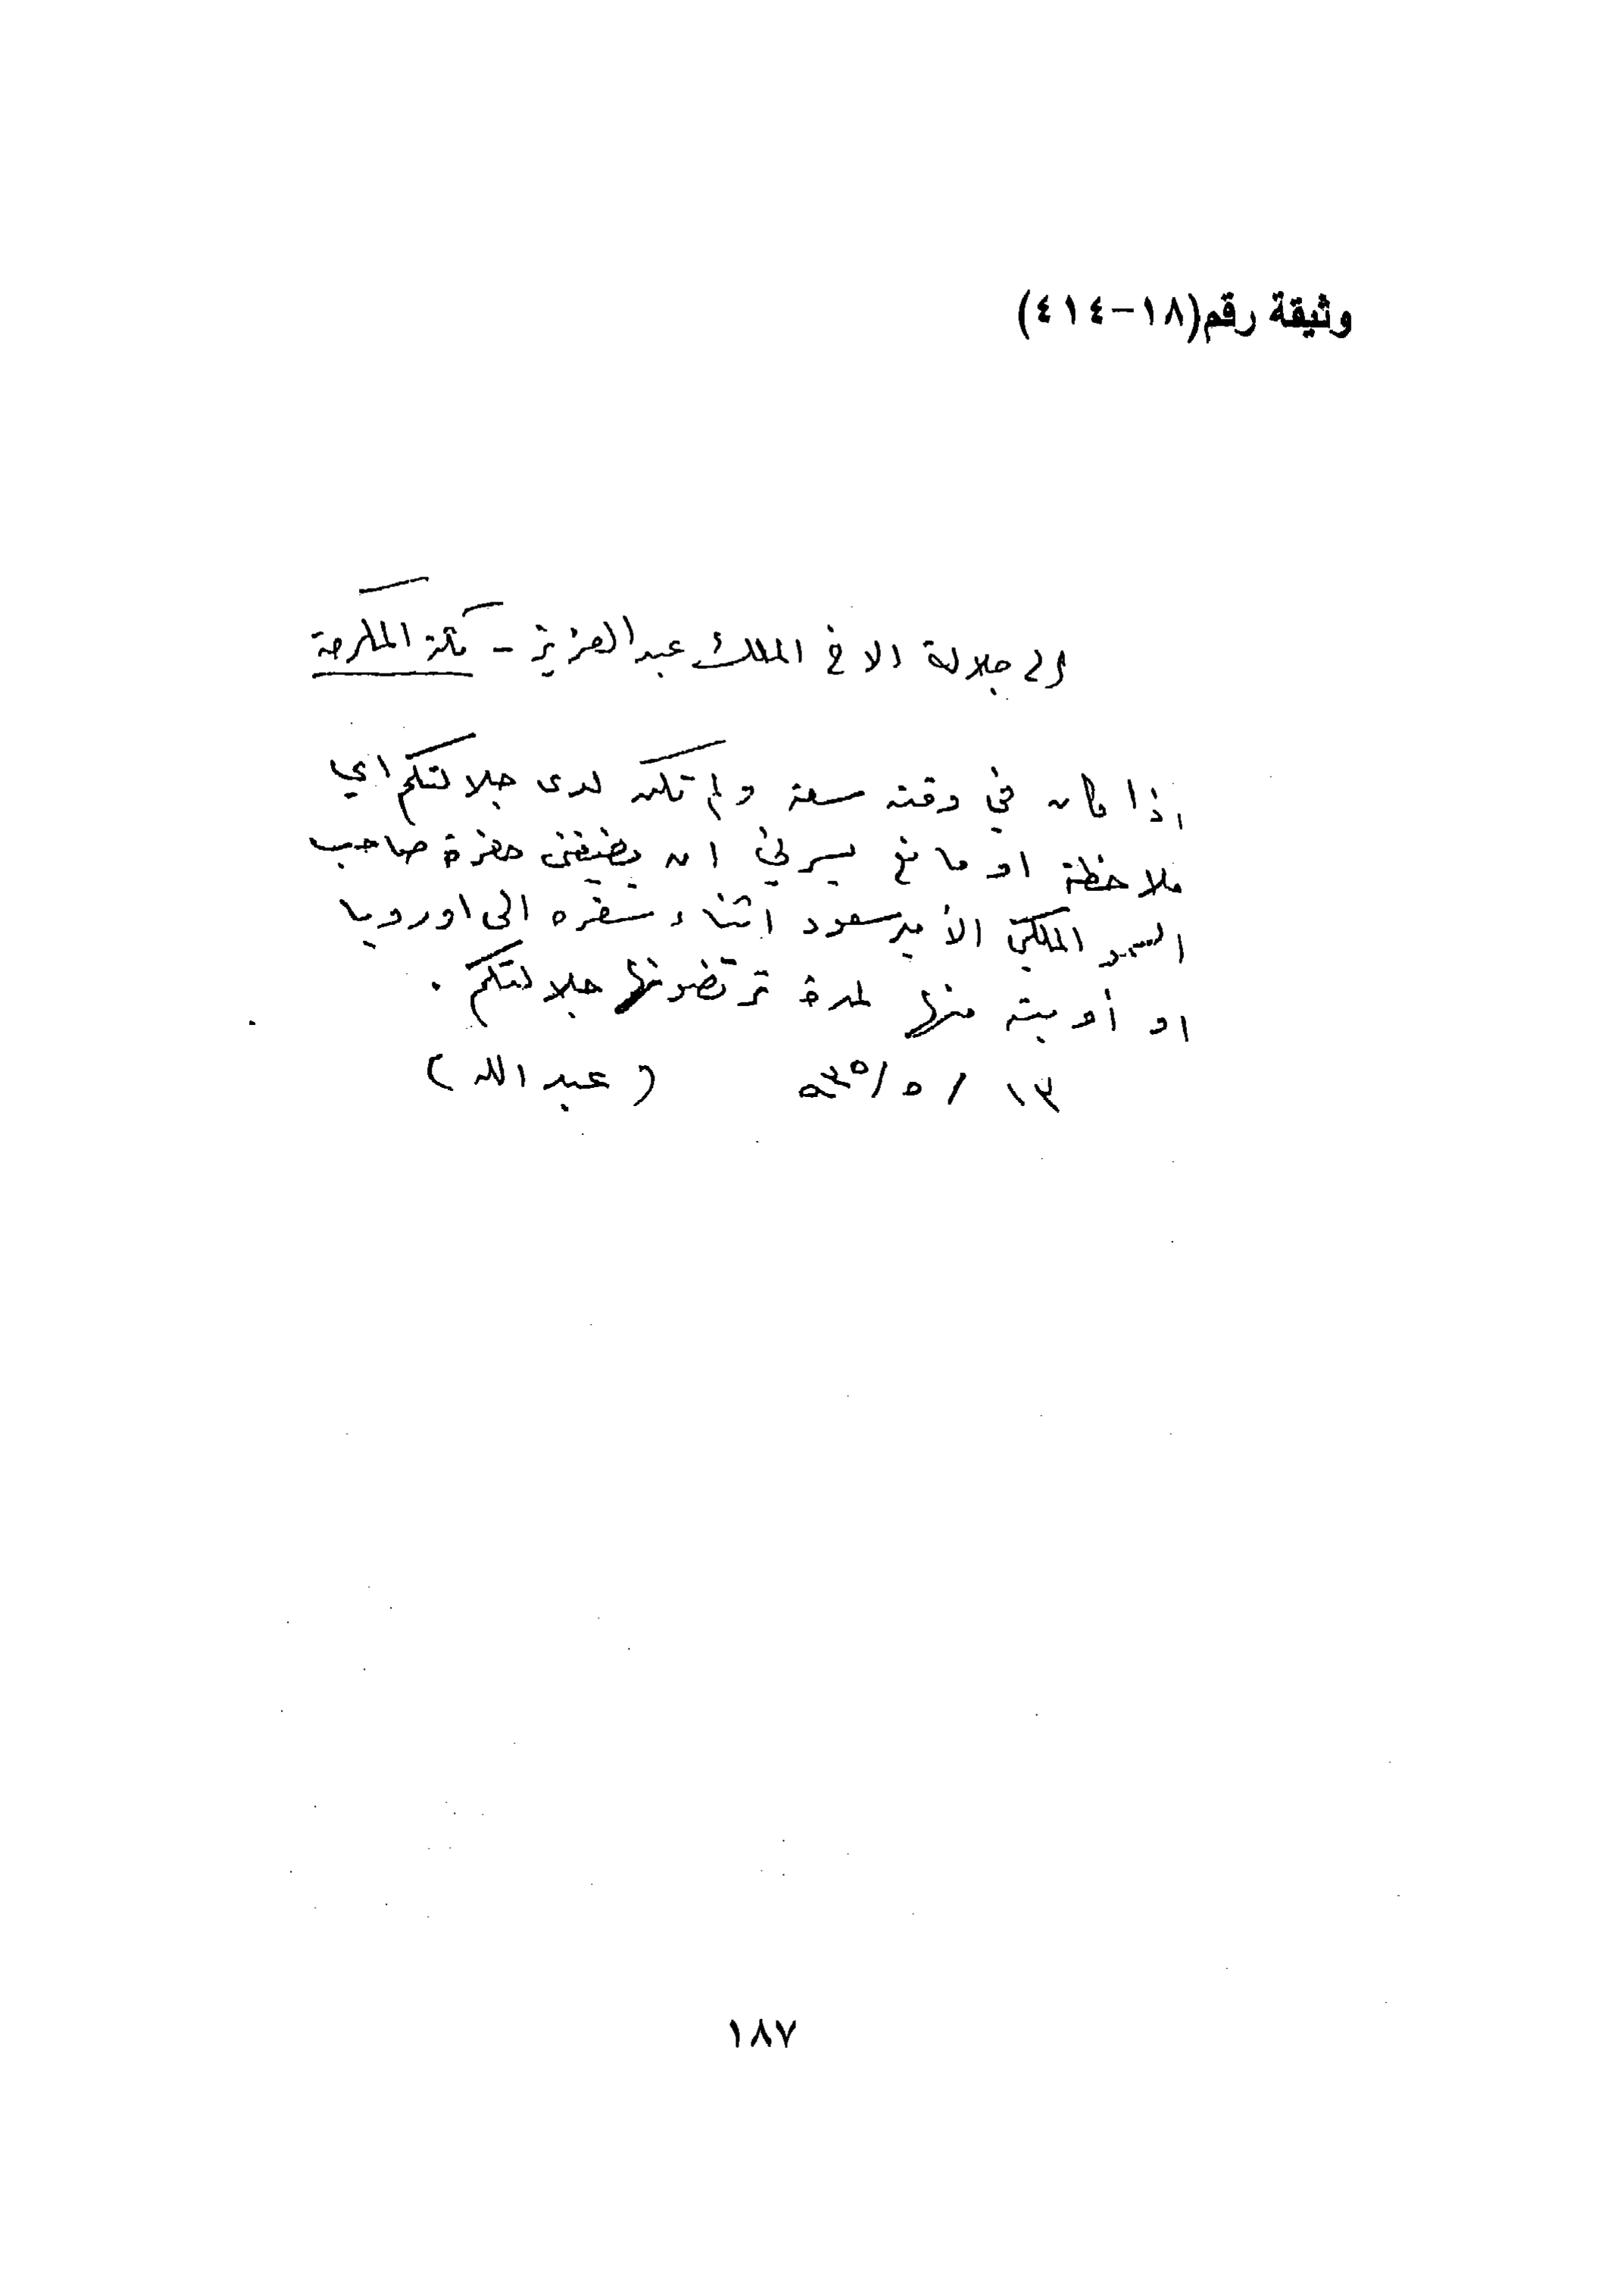 وثيقة رقم(١٨-٤١٤)
الى جلالة الاخ الملك عبد العزيز - مكة المكرمة
اذا كان في وقته سعة ولم تكن لدى جلالتكم اي
ملاحظة او مانع يسرني ان يضيفني حضرة صاحب
السمو الملكي الأمير سعود اثناء سفره الى اوروبا
او أوبته منها لمدة ترتضونها جلالتكم .
١٣ / ٥/ ٣٥ (عبد الله)
١٨٧